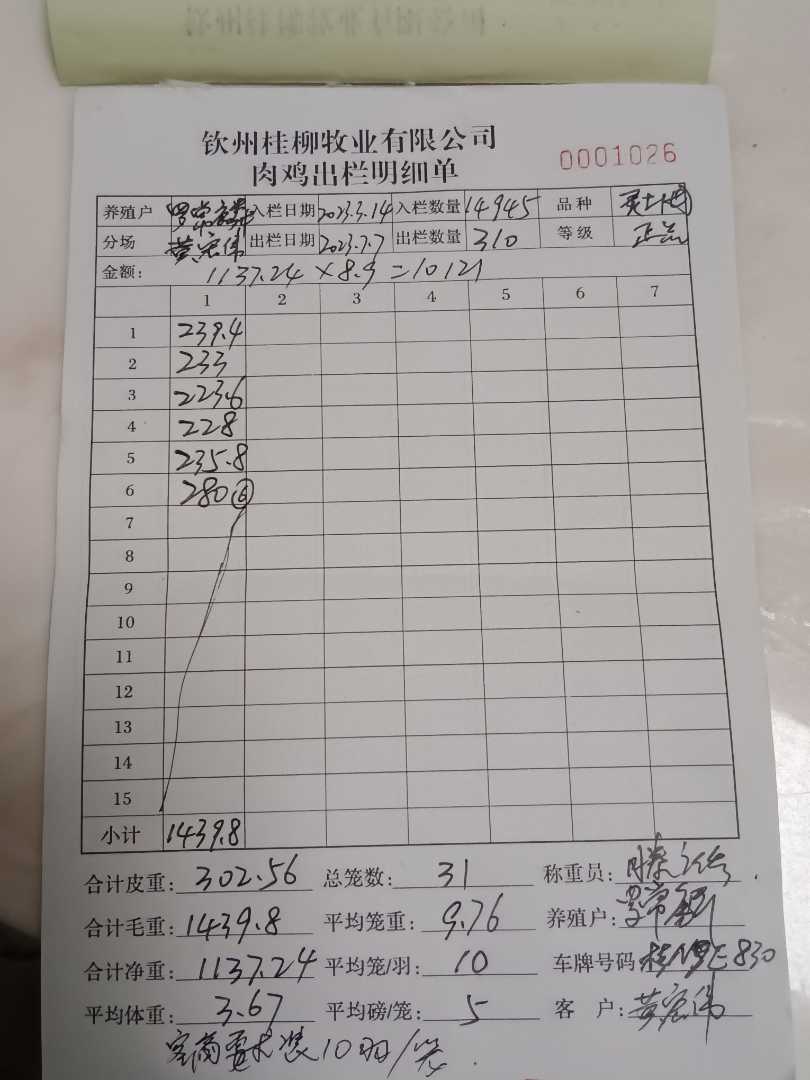 钦州桂柳牧业有限公司
肉鸡出栏明细单
0001026
养殖户 罗常 入栏日期 2023.3.14 入栏数量 14945 品种
分场 黄宏伟 出栏日期 2023.7.7 出栏数量 310 等级 正品
金额: 1137.24×8.9=10121
1 2 3 4 5 6 7
1 239.4
2 233
3 223.6
4 228
5 235.8
6 280⑥
7
8
9
10
11
12
13
14
15
小计 1439.8
合计皮重: 302.56 总笼数: 31 称重员:
合计毛重: 1439.8 平均笼重: 9.76 养殖户: 罗常
合计净重: 1137.24 平均笼/羽: 10 车牌号码 桂N E830
平均体重: 3.67 平均磅/笼: 5 客户: 黄宏伟
客商要求装10羽/笼.